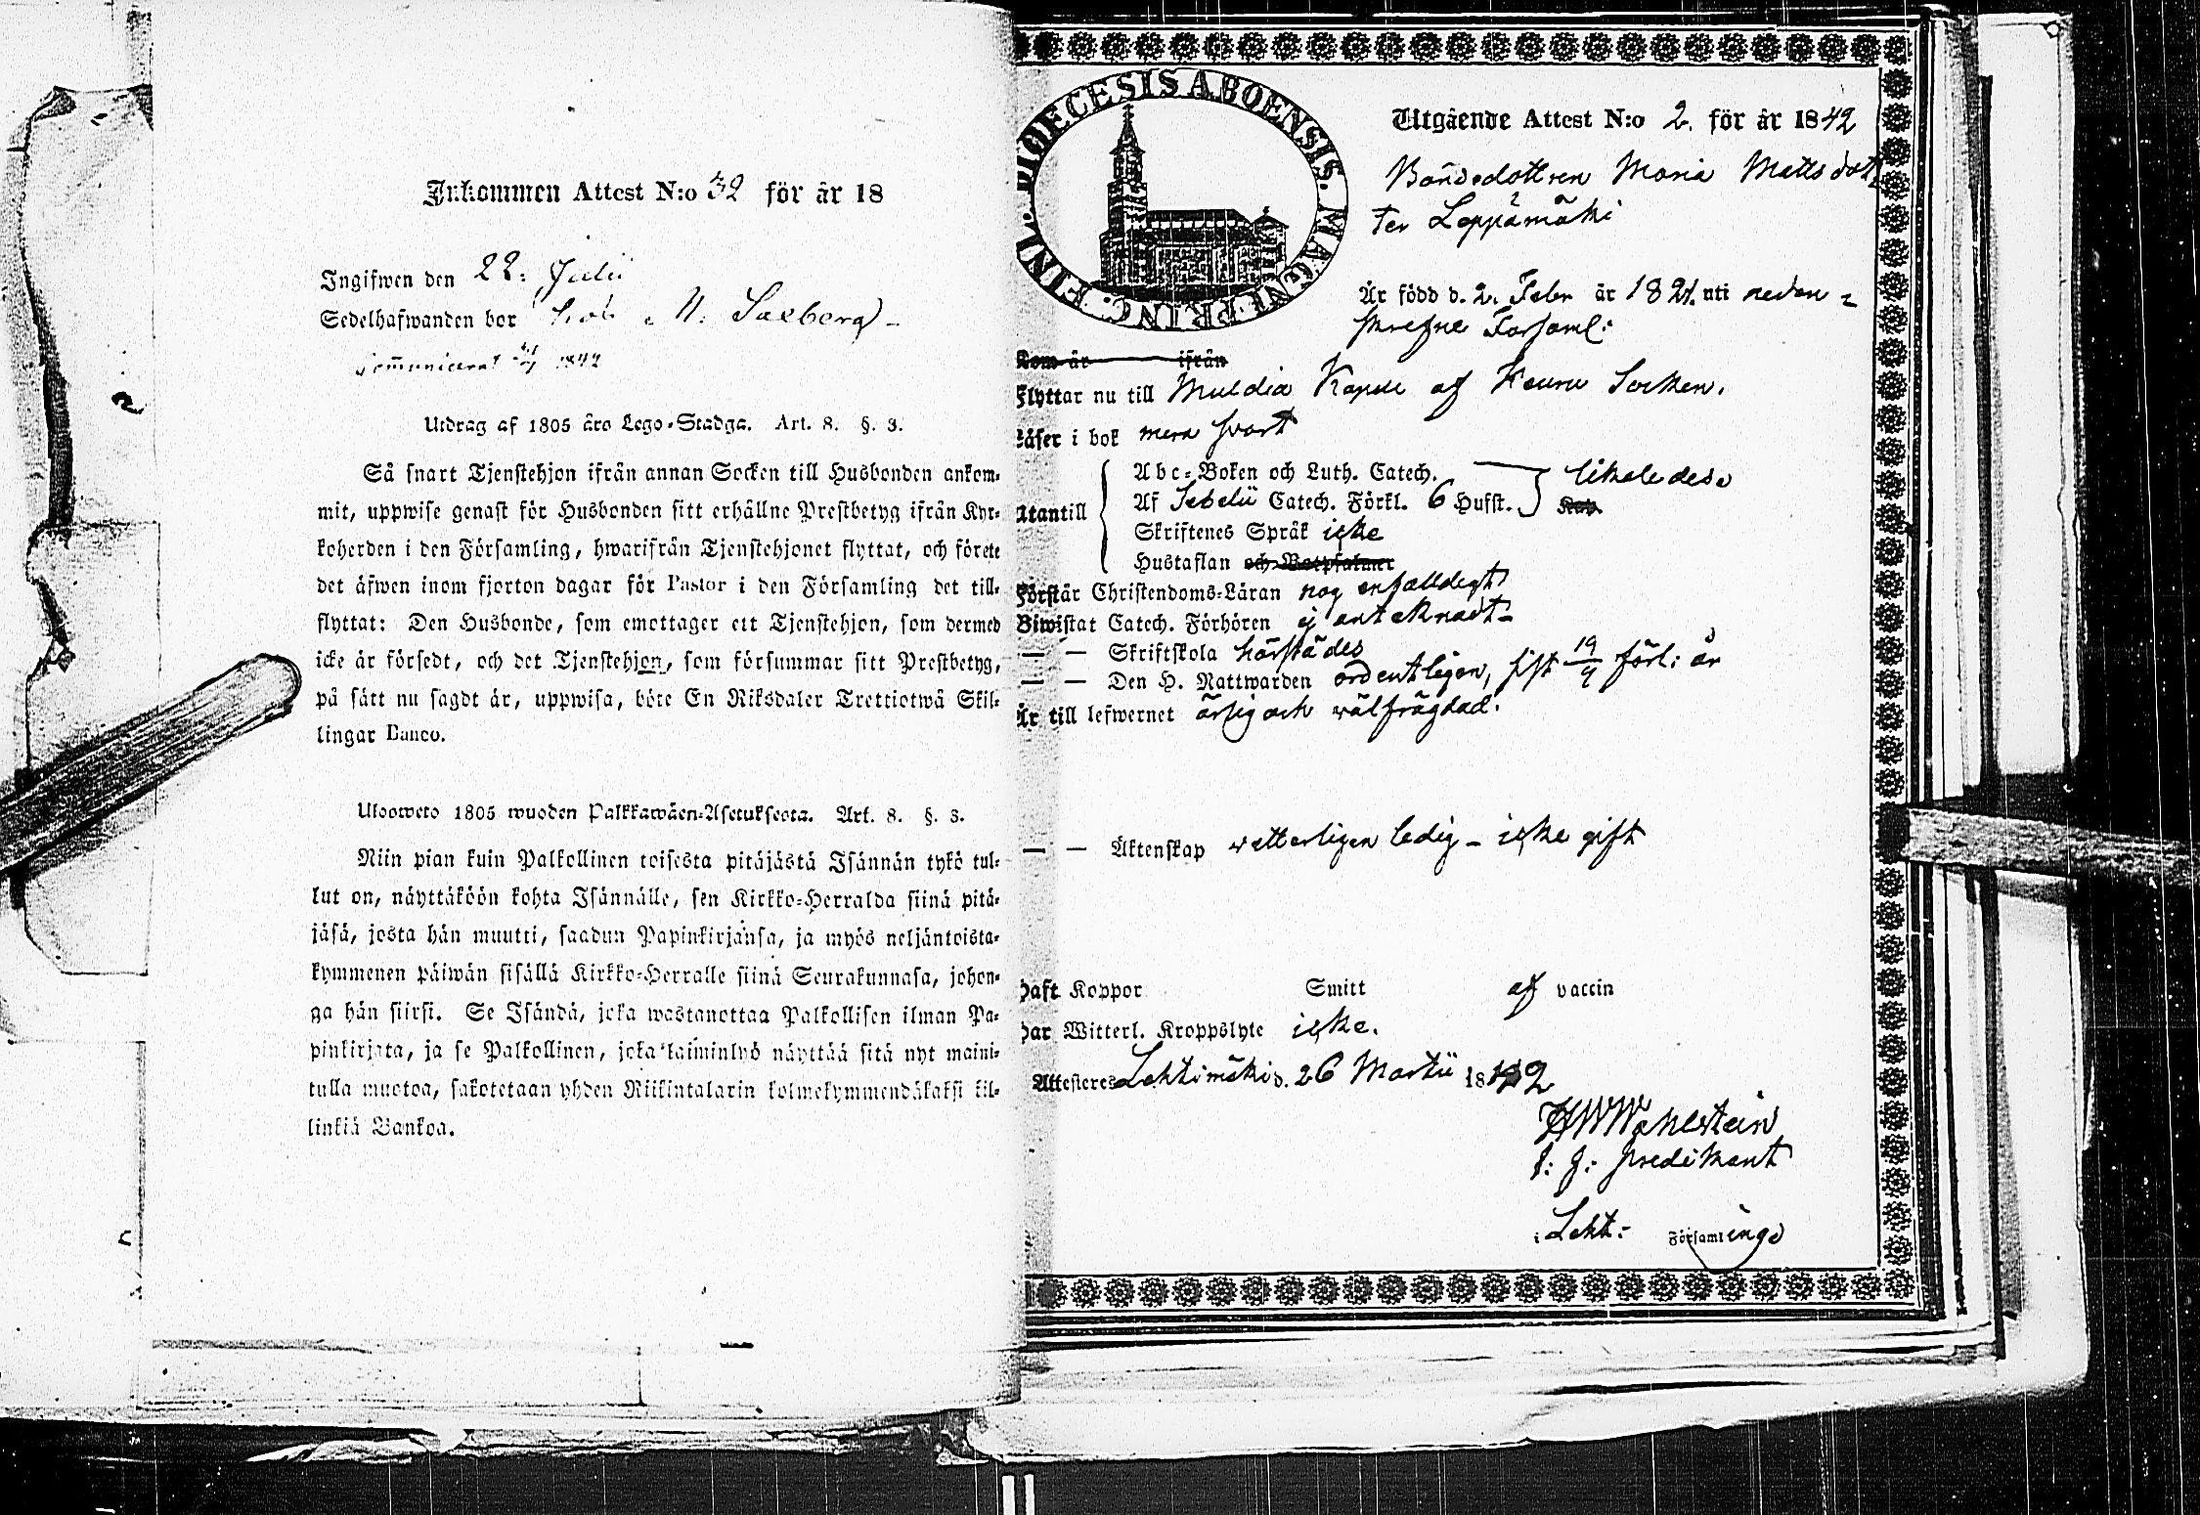 Inkommen Attest N:o 32 för år 18
Ingifwen den 22: Julii
Sedelhafwanden bor hos M. Saxberg
1842
Utdrag af 1805 års Lego-Stadga. Art. 8. §. 3.
Så snart Tjenstehjon ifrån annan Socken till Husbonden ankom-
mit, uppwise genast för Husbonden sitt erhållne Prestbetyg ifrån Kyr-
koherden i den Församling, hwarifrån Tjenstehjonet flyttat, och förete
det äfwen inom fjorton dagar för Pastor i den Församling det till-
flyttat: Den Husbonde, som emottager ett Tjenstehjon, som dermed
icke är försedt, och det Tjenstehjon, som försummar sitt Prestbetyg,
på sätt nu sagdt är, uppwisa, böte En Riksdaler Trettiotwå Skil-
lingar Banco.
Ulosweto 1805 wuoden Palkkawäen-Asetuksesta. Art. 8. §. 3.
Niin pian kuin Palkollinen toisesta pitäjästä Isännän tykö tul-
lut on, näyttäköön kohta Isännälle, sen Kirkko-Herralda siinä pitä-
jäsä, josta hän muutti, saadun Papinkirjansa, ja myös neljäntoista-
kymmenen päiwän sisällä Kirkko-Herralle siinä Seurakunnasa, johon-
ga hän siirsi. Se Isändä, joka wastanottaa Palkollisen ilman Pa-
pinkirjata, ja se Palkollinen, joka laiminlyö näyttää sitä nyt maini-
tulla muotoa, sakotetaan yhden Riikintalarin kolmekymmendäkaksi kil-
linkiä Bankoa.
FINL. DIOECESIS ABOENSIS. MAGNI PRINC.
Utgående Attest N:o 2. för år 1842
Bondedottren Maria Matts dot
ter Leppämäki
Är född d. 2. Febr år 1821. uti nedan=
skrefne Församl:
Kom år ifrån
Flyttar nu till Muldia Kapell af Keuru Socken.
Läser i bok mera svart
Abc-Boken och Luth. Catech. likaledes
Utantill Af Sebelii Catech. Förkl. 6 Hufst.
Skriftenes Språk icke
Hustaflan och Botpsalmer
Förstår Christendoms-Läran nog enfalldigt
Biwistat Catech. Förhören ej antecknadt
— — Skriftskola härstädes
— — Den H. Nattwarden ordentligen, sist 19/9 förl: år
Är till lefwernet ärlig och wälfrägdad.
— — Äktenskap wetterligen ledig – icke gift
Haft Koppor Smitt af vaccin
Har Witterl. Kroppslyte icke.
Attesteres Lehtimäki d. 26 Martii 1842
HWWahlstein
t: j: predikant
i Leht: Församlings